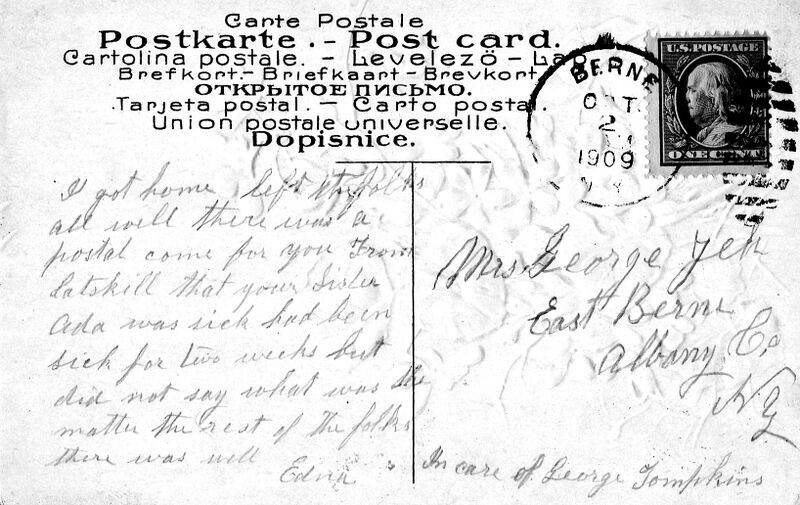 Carte Postale
Postkarte .- Post card.
Cartolina postale. - Levelezö - La
Brefkort.- Briefkaart - Brevkort
ОТКРЫТОЕ ПИСЬМО.
Tarjeta postal. - Carto postal.
Union postale universelle.
Dopisnice.
U.S. POSTAGE
ONE CENT
BERNE
OCT
2
1909
N.Y.
I got home left the folks
all well there was a
postal come for you From
Catskill that your Sister
Ada was sick had been
sick for two weeks but
did not say what was the
matter the rest of the folks
there was well
Edna
Mrs. George
East Berne
Albany Co
NY
In care of George Tompkins